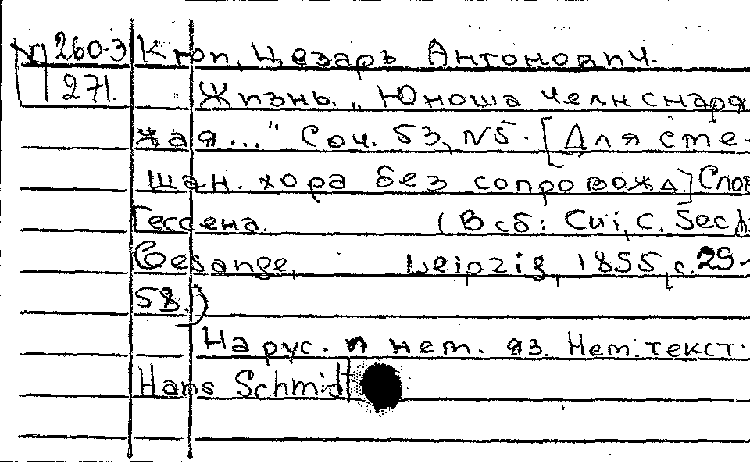 М 260-3 Кюи, Цезарь Антонович.
271. Жизнь. „Юноша челн снаря
жая..." Соч. 53, №5. [Для сме-
шан. хора без сопровожд] Слов
Гессена. (В сб: Cui, C. Sech
Gesange, Leipzig, 1855, с. 29-
58.)
На рус. и нем. яз. Нем. текст.
Hans Schmidt